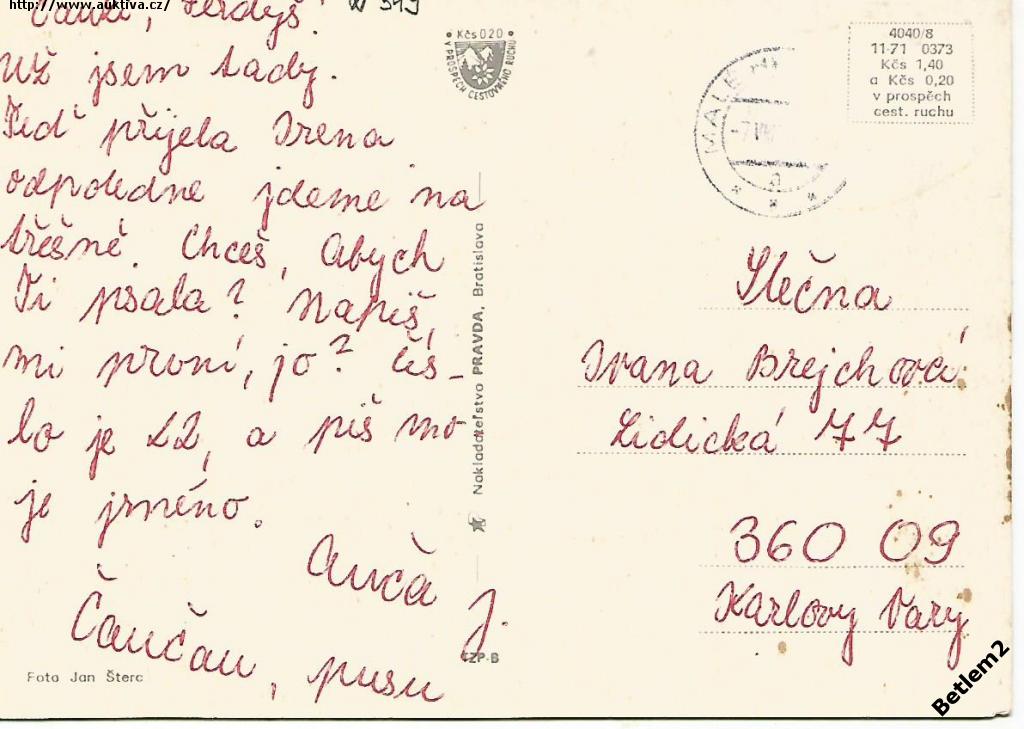 http://www.auktiva.cz/
Už jsem tady.
Teď přijela Irena
odpoledne jdeme na
třešně. Chceš, Abych
Ti psala? Napiš,
mi první, jo? čís-
lo je 22, a piš mo
je jméno.
Auča J.
Čaučau, pusu
Foto Jan Šterc
Kčs 020
V PROSPĚCH CESTOVNÉHO RUCHU
Nakladateľstvo PRAVDA, Bratislava
TZP-B
4040/8
11-71 0373
Kčs 1,40
a Kčs 0,20
v prospěch
cest. ruchu
Slečna
Ivana Brejchová
Lidická 77
360 09
Karlovy Vary
Betlem2